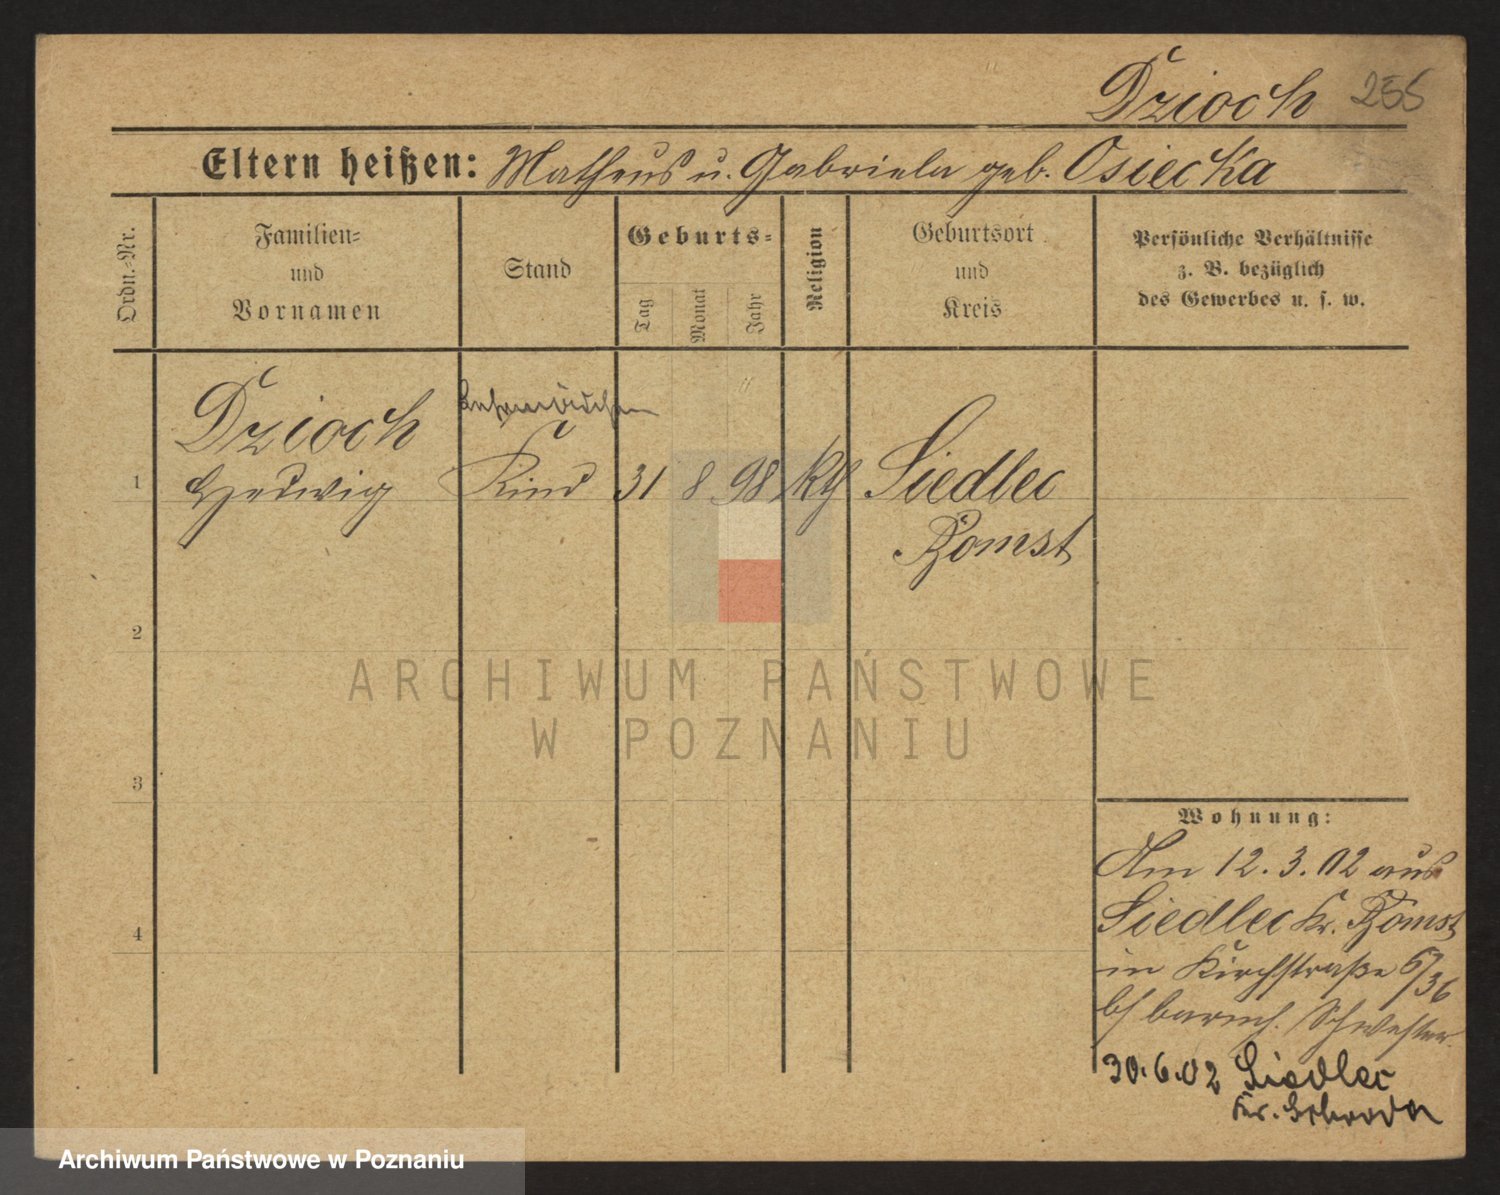 Dzioch 255
Eltern heißen: Matheus u. Gabriela geb. Osiecka
Ordn.-Nr.
Familien-
und
Vornamen
Stand
Geburts-
Tag
Monat
Jahr
Religion
Geburtsort
und
Kreis
Persönliche Verhältnisse
z. B. bezüglich
des Gewerbes u. s. w.
Dzioch
1 Hedwig Kind 31 8 98 kth Siedlec
Bomst
2
3
4
Wohnung:
Am 12.3.02 aus
Siedlec Kr. Bomst
in Kirchstraße 67/36
b/ barmh. Schwester.
30.6.02 Siedlec
Kr. Schroda
ARCHIWUM PAŃSTWOWE
W POZNANIU
Archiwum Państwowe w Poznaniu